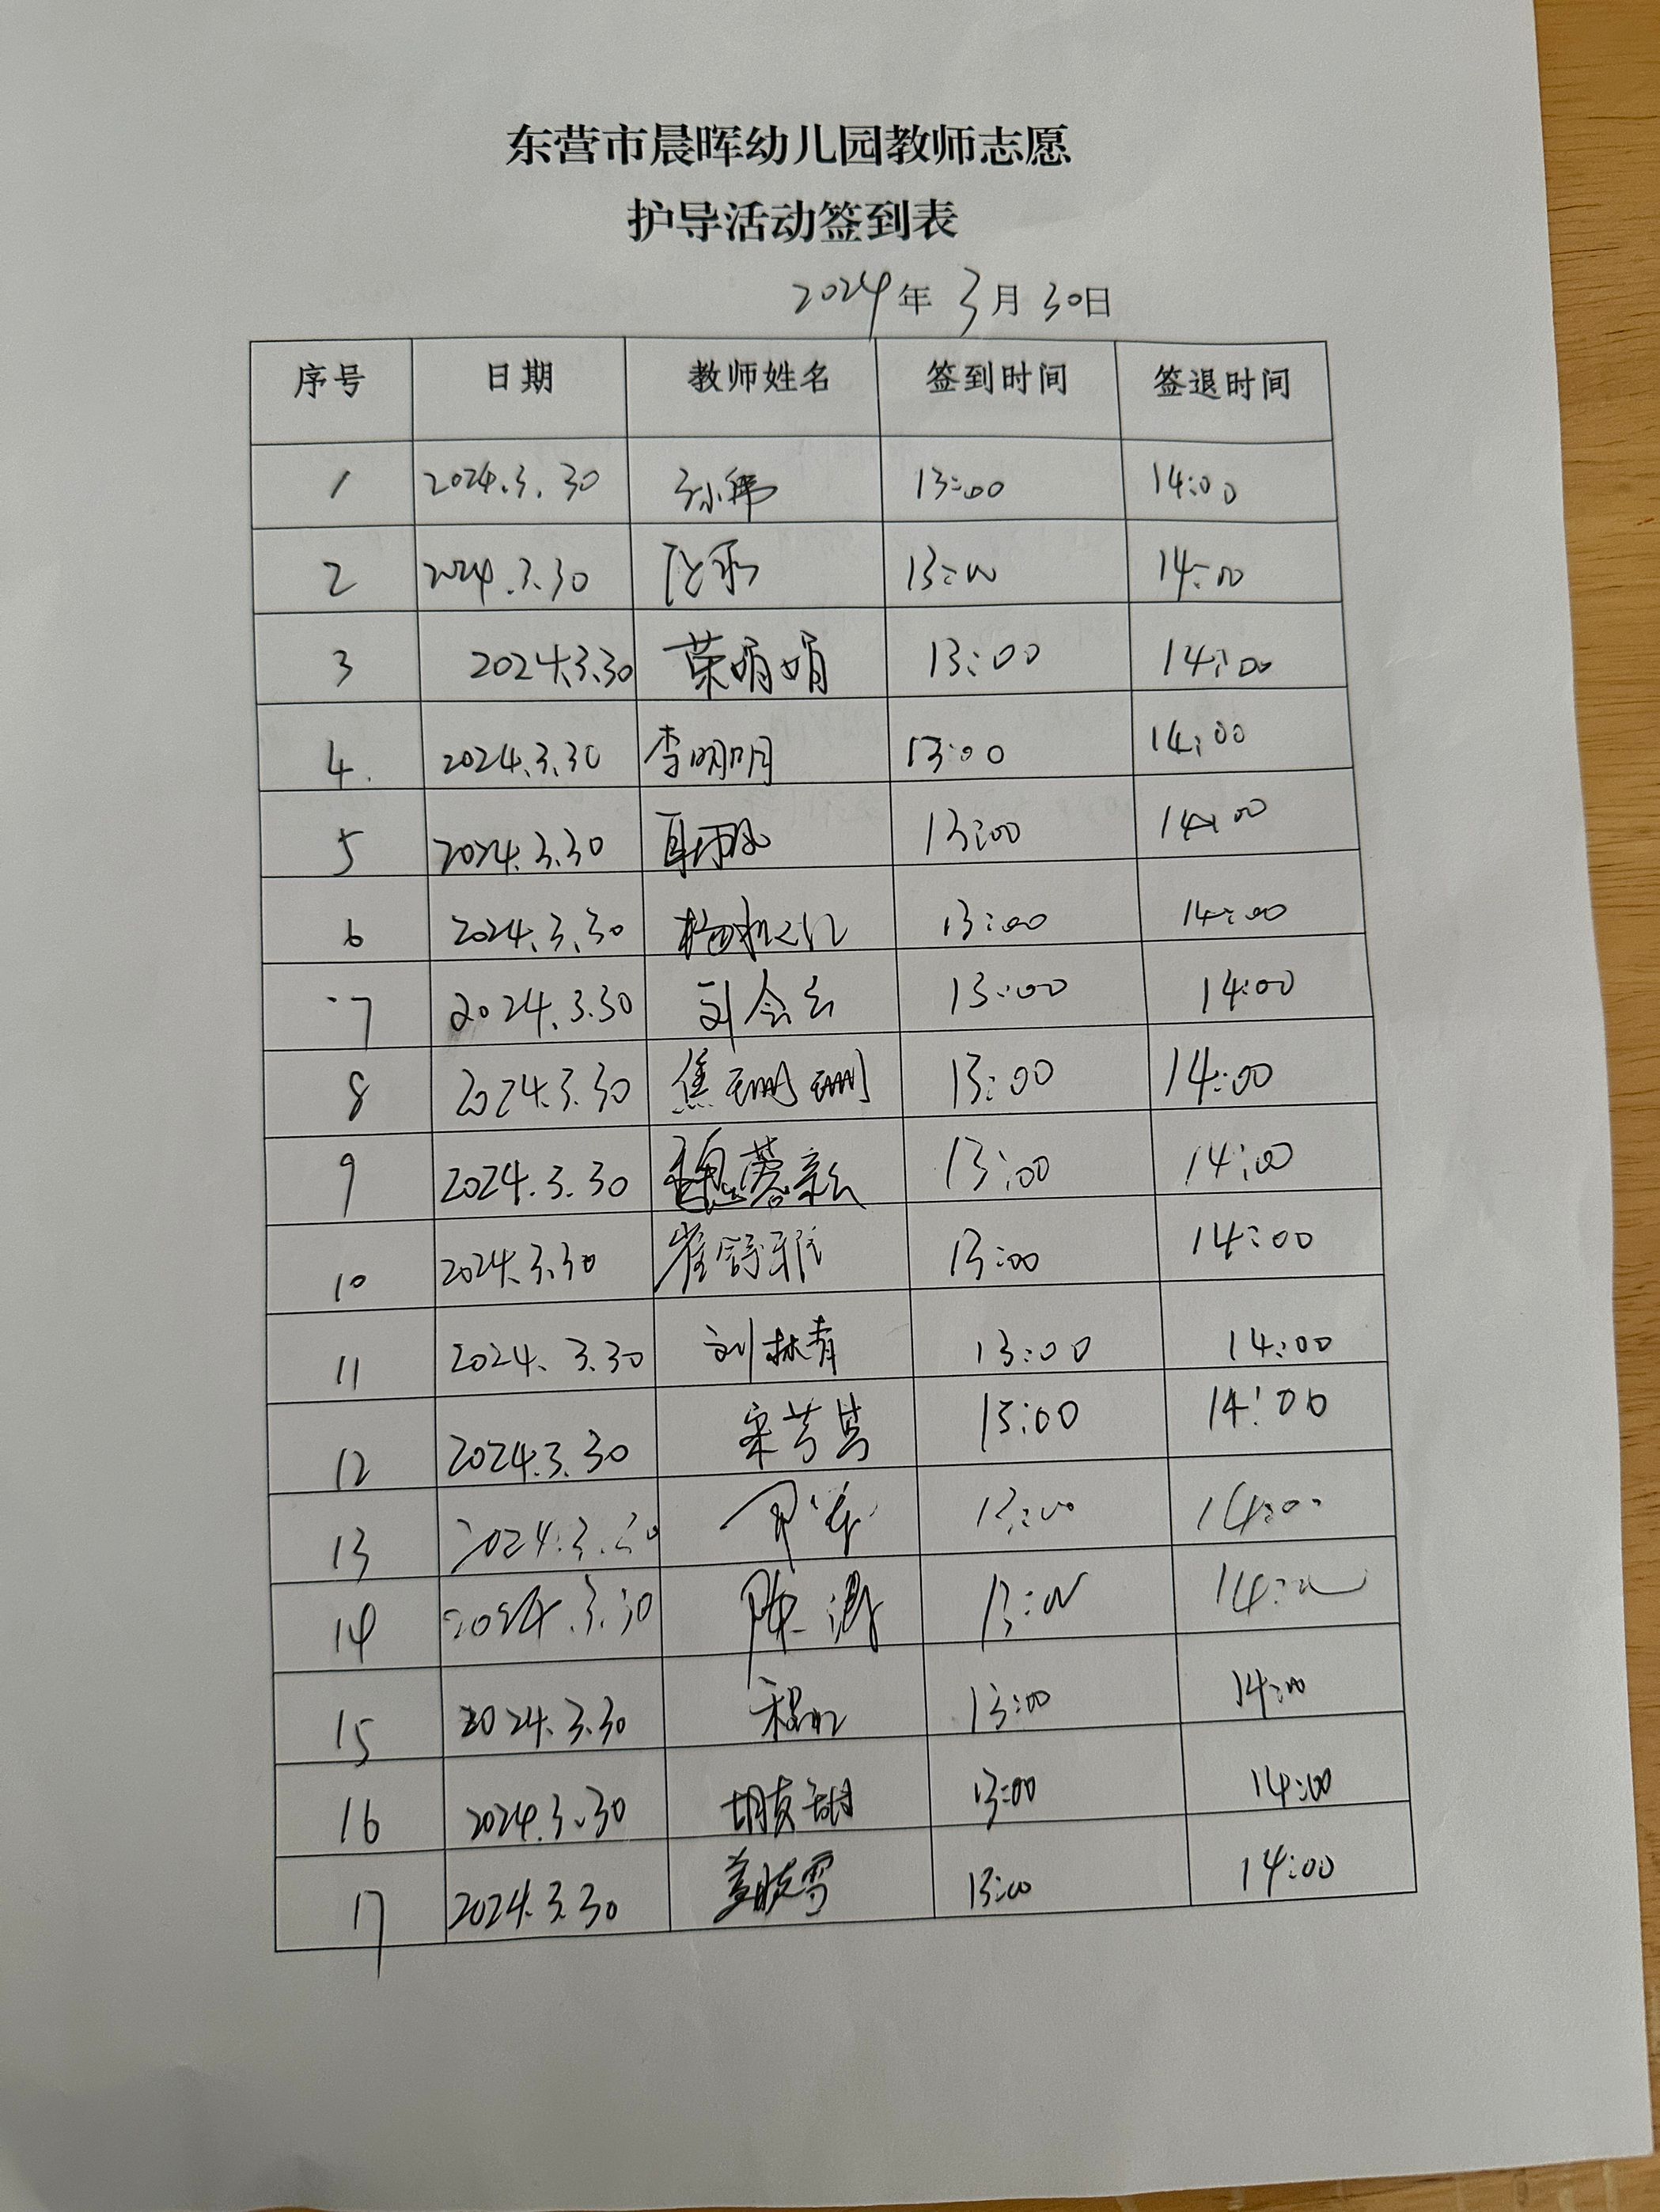 东营市晨晖幼儿园教师志愿
护导活动签到表
2024年3月30日
序号 日期 教师姓名 签到时间 签退时间
1 2024.3.30 孙伟 13:00 14:00
2 2024.3.30 13:00 14:00
3 2024.3.30 荣娟娟 13:00 14:00
4. 2024.3.30 李明明 13:00 14:00
5 2024.3.30 13:00 14:00
6 2024.3.30 13:00 14:00
7 2024.3.30 刘会云 13:00 14:00
8 2024.3.30 焦珊珊 13:00 14:00
9 2024.3.30 13:00 14:00
10 2024.3.30 崔舒雅 13:00 14:00
11 2024.3.30 刘林青 13:00 14:00
12 2024.3.30 13:00 14:00
13 2024.3.30 13:00 14:00
14 2024.3.30 陈 13:00 14:00
15 2024.3.30 13:00 14:00
16 2024.3.30 胡友甜 13:00 14:00
17 2024.3.30 13:00 14:00